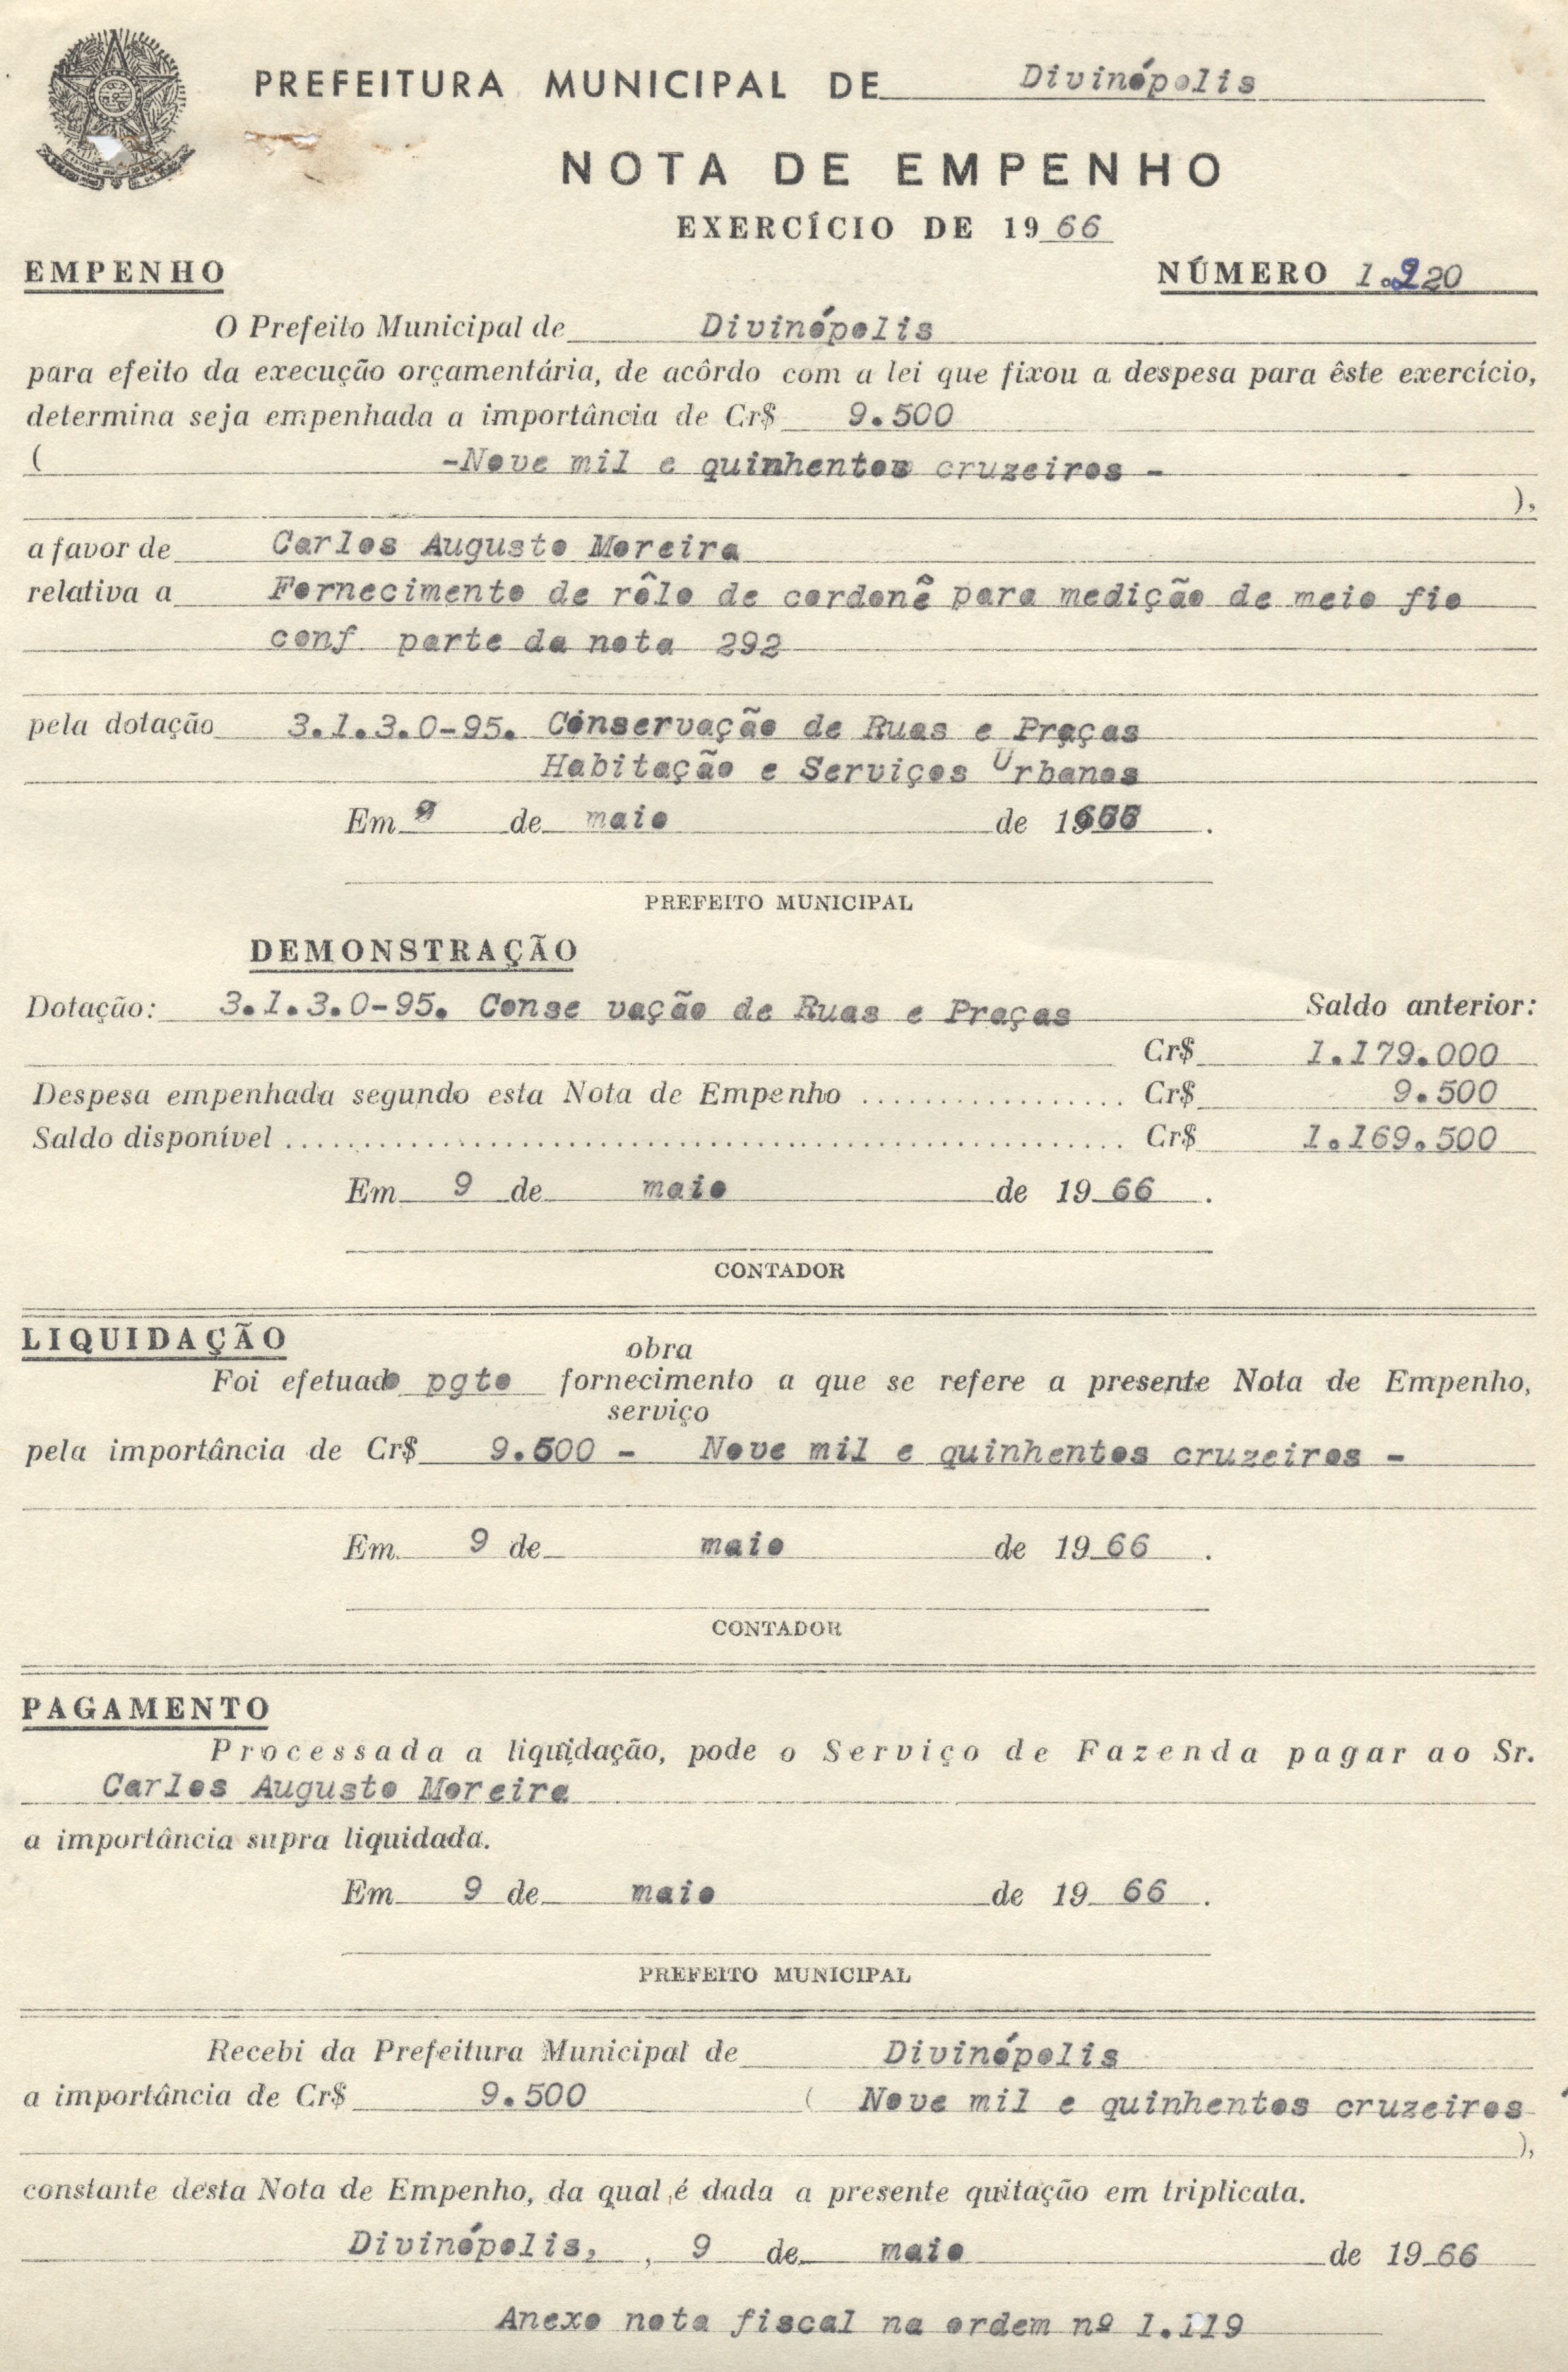 PREFEITURA MUNICIPAL DE Divinópolis
NOTA DE EMPENHO
EXERCÍCIO DE 1966
EMPENHO
NÚMERO 1.220
O Prefeito Municipal de Divinópolis
para efeito da execução orçamentária, de acôrdo com a lei que fixou a despesa para êste exercício,
determina seja empenhada a importância de Cr$ 9.500
( -Nove mil e quinhentos cruzeiros -
),
a favor de Carlos Augusto Moreira
relativa a Fornecimento de rôlo de cordonê para medição de meio fio
conf. parte da nota 292
pela dotação 3.1.3.0-95. Conservação de Ruas e Praças
Habitação e Serviços Urbanos
Em 9 de maio de 1966.
PREFEITO MUNICIPAL
DEMONSTRAÇÃO
Dotação: 3.1.3.0-95. Conse vação de Ruas e Praças Saldo anterior:
Cr$ 1.179.000
Despesa empenhada segundo esta Nota de Empenho ................. Cr$ 9.500
Saldo disponível ...................................................... Cr$ 1.169.500
Em 9 de maio de 1966.
CONTADOR
LIQUIDAÇÃO
obra
Foi efetuado pgto fornecimento a que se refere a presente Nota de Empenho,
serviço
pela importância de Cr$ 9.500 - Nove mil e quinhentos cruzeiros -
Em 9 de maio de 1966.
CONTADOR
PAGAMENTO
Processada a liquidação, pode o Serviço de Fazenda pagar ao Sr.
Carlos Augusto Moreira
a importância supra liquidada.
Em 9 de maio de 1966.
PREFEITO MUNICIPAL
Recebi da Prefeitura Municipal de Divinópolis
a importância de Cr$ 9.500 ( Nove mil e quinhentos cruzeiros
),
constante desta Nota de Empenho, da qual é dada a presente quitação em triplicata.
Divinópolis, , 9 de maio de 1966
Anexo nota fiscal na ordem nº 1.119